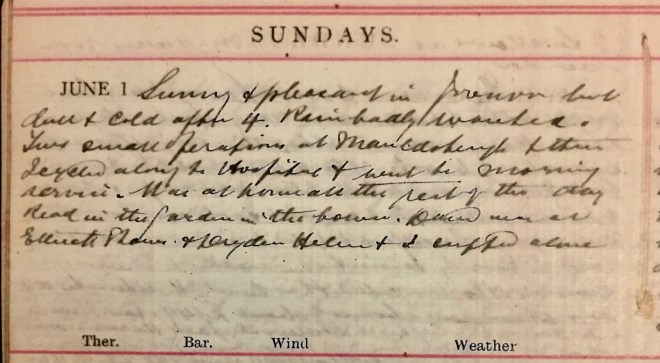 SUNDAYS.
JUNE 1 Sunny & pleasant in forenoon but
dull & cold after 4. Rain badly wanted.
Two small operations at & then
cycled along to Hospital & went to morning
service. Was at home all the rest of the day
Read in the garden in the. David was at
& Helen & I supped alone
Ther. Bar. Wind Weather